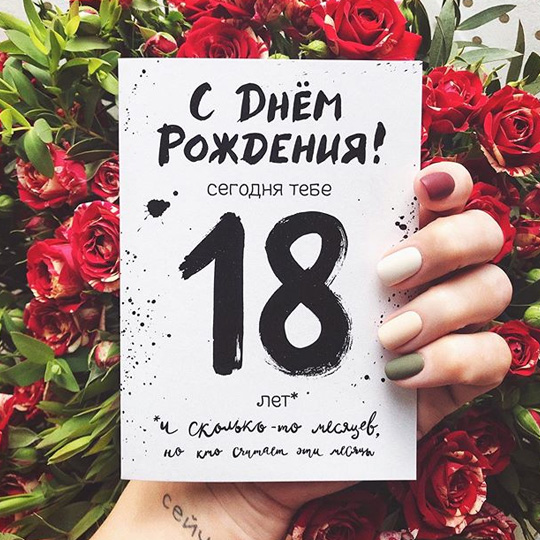 С Днём
Рождения!
сегодня тебе
18
лет*
*и сколько-то месяцев,
но кто считает эти месяцы
сейч